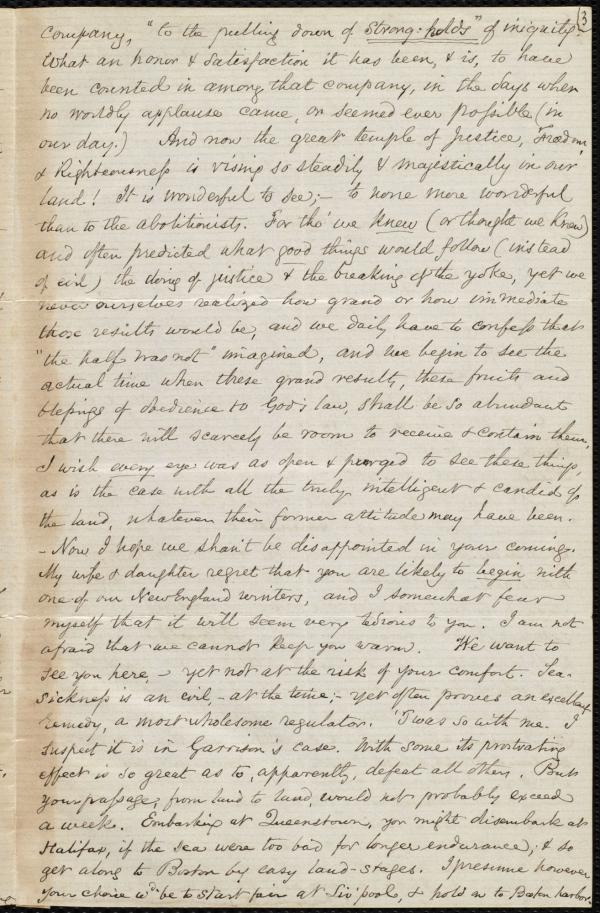 (3
company, "to the pulling down of strong-holds" of iniquity.
What an honor & satisfaction it has been, & is, to have
been counted in among that company, in the days when
no worldly applause came, or seemed ever possible (in
our day.) And now the great temple of Justice, Freedom,
& Righteousness is rising so steadily & majestically in our
land! It is wonderful to see; – to none more wonderful
than to the abolitionists. For tho' we knew (or thought we knew)
and often predicted what good things would follow (instead
of evil) the doing of justice & the breaking of the yoke, yet we
never ourselves realized how grand or how immediate
those results would be, and we daily have to confess that
"the half was not" imagined, and we begin to see the
actual time when these grand results, these fruits and
blessings of obedience to God's law, shall be so abundant
that there will scarcely be room to receive & contain them.
I wish every eye was as open & purged to see these things,
as is the case with all the truly intelligent & candid of
the land, whatever their former attitude may have been.
– Now I hope we shan't be disappointed in your coming.
My wife & daughter regret that you are likely to begin with
one of our New England winters, and I somewhat fear
myself that it will seem very tedious to you. I am not
afraid that we cannot keep you warm. We want to
see you here, – yet not at the risk of your comfort. Sea-
sickness is an evil, – at the time; – yet often proves an excellent
remedy, a most wholesome regulator. 'Twas so with me. I
suspect it is in Garrison's case. With some its prostrating
effect is so great as to, apparently, defeat all others. But
your passage, from land to land, would not probably exceed
a week. Embarking at Queenstown, you might disembark at
Halifax, if the sea were too bad for longer endurance; & so
get along to Boston by easy land-stages. I presume however
your choice wd. be to start fair at Liv'pool, & hold on to Boston harbor.